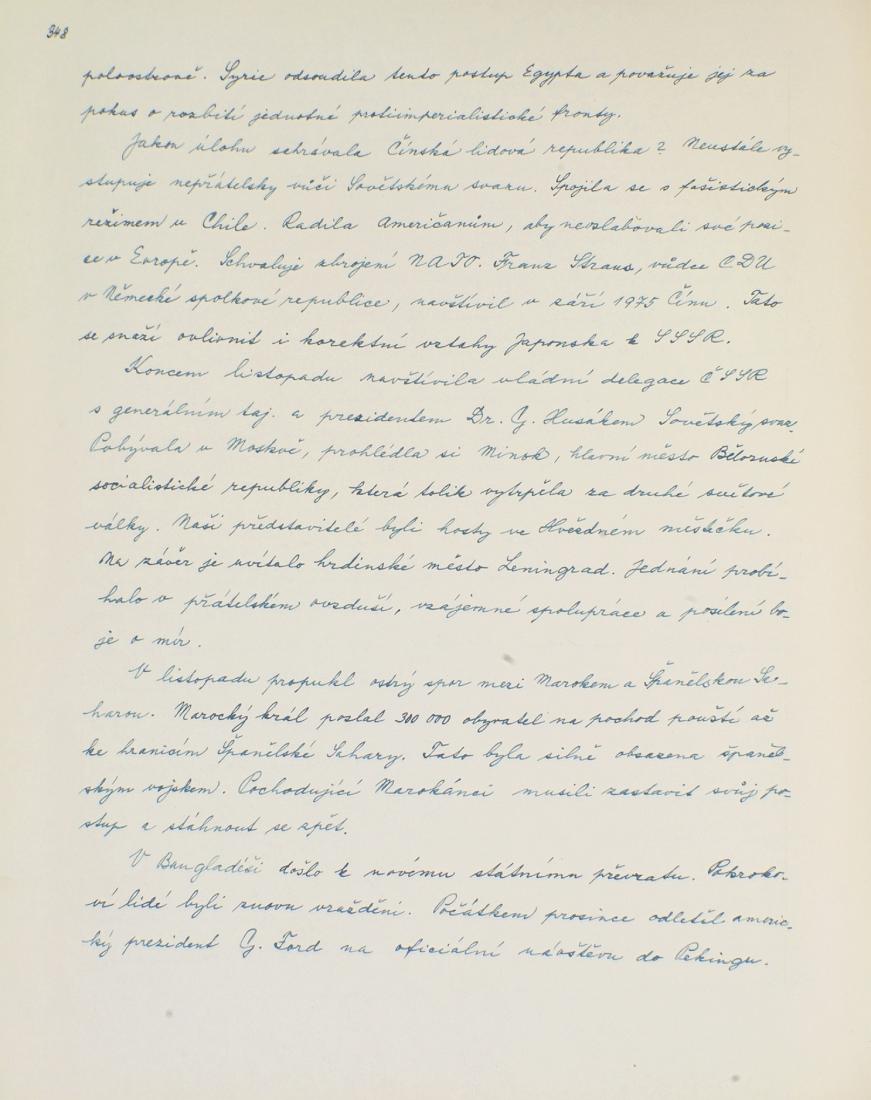 348
poloostrově. Syrie odsoudila tento postup Egypta a považuje jej za
pokus o rozbití jednotné protiimperialistické fronty.
Jakou úlohu sehrávala Čínská lidová republika? Neustále vy-
stupuje nepřátelsky vůči Sovětskému svazu. Spojila se s fašistickým
režimem v Chile. Radila Američanům, aby neoslabovali své pozi-
ce v Evropě. Schvaluje zbrojení NATO. Franz Straus, vůdce CDU
v Německé spolkové republice, navštívil v září 1975 Čínu. Tato
se snaží ovlivnit i korektní vztahy Japonska k SSSR.
Koncem listopadu navštívila vládní delegace ČSSR
s generálním taj. a presidentem Dr. G. Husákem Sovětský svaz.
Pobývala v Moskvě, prohlédla si Minsk, hlavní město Běloruské
socialistické republiky, která tolik vytrpěla za druhé světové
války. Naši představitelé byli hosty ve Hvězdném městečku.
Na závěr je uvítalo hrdinské město Leningrad. Jednání probí-
halo v přátelském ovzduší, vzájemné spolupráce a posílení bo-
je o mír.
V listopadu propukl ostrý spor mezi Marokem a Španělskou Sa-
harou. Marocký král poslal 300 000 obyvatel na pochod pouští až
ke hranicím Španělské Sahary. Tato byla silně obsazena španěl-
ským vojskem. Pochodující Marokánci musili zastavit svůj po-
stup a stáhnout se zpět.
V Bangladéši došlo k novému státnímu převratu. Pokroko-
ví lidé byli znovu vražděni. Počátkem prosince odletěl americ-
ký prezident G. Ford na oficiální návštěvu do Pekingu.